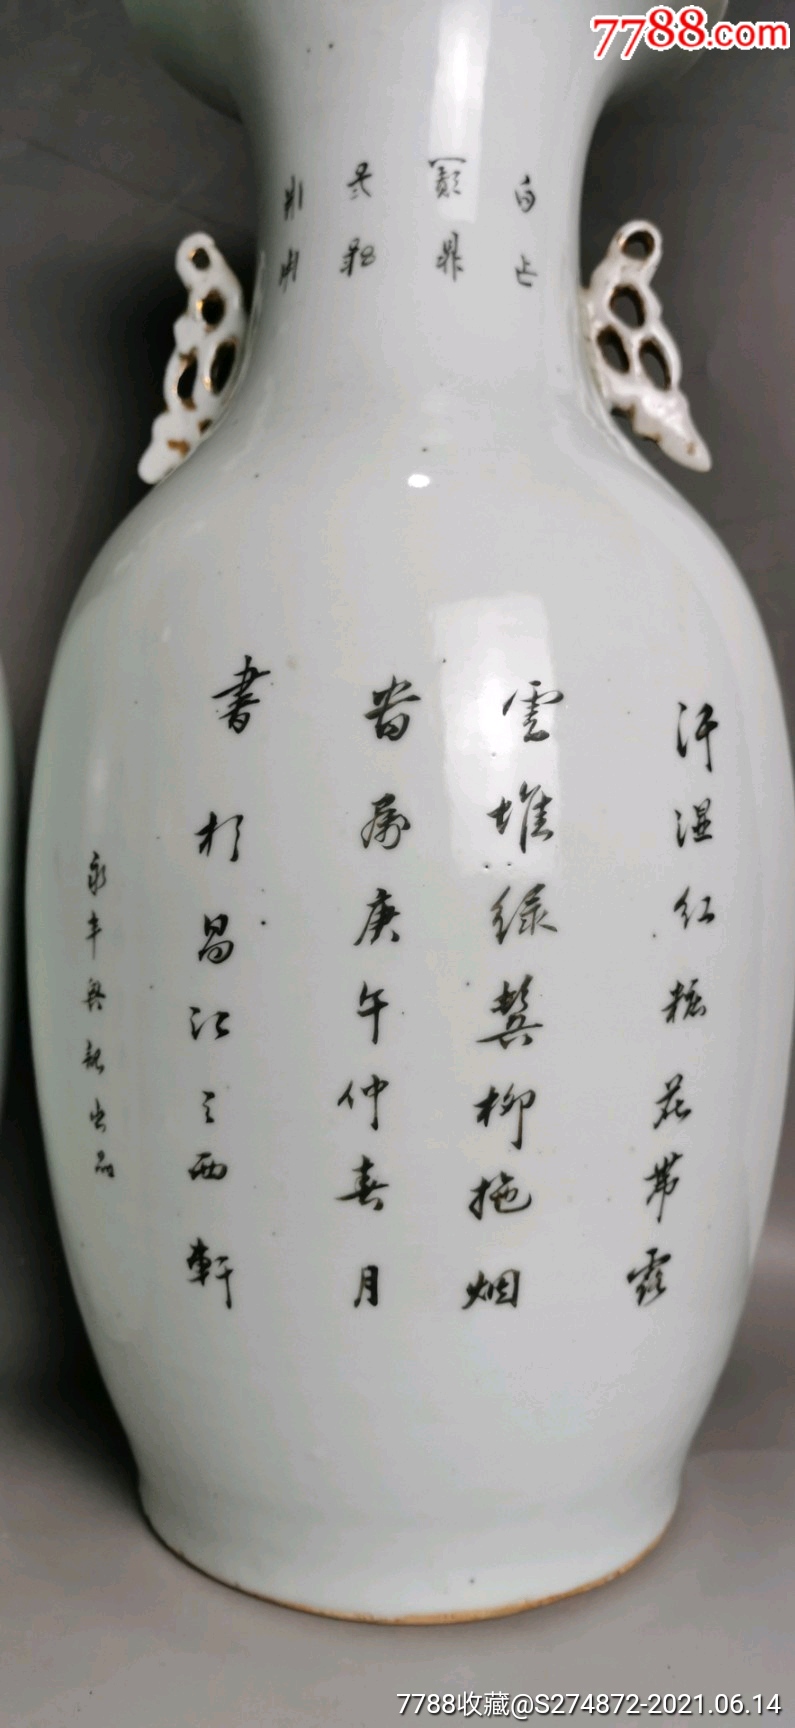 7788.com
汗湿红糚花带露
雲堆绿鬓柳拖烟
旹属庚午仲春月
書於昌江之西軒
永丰興號出品
7788收藏@S274872-2021.06.14